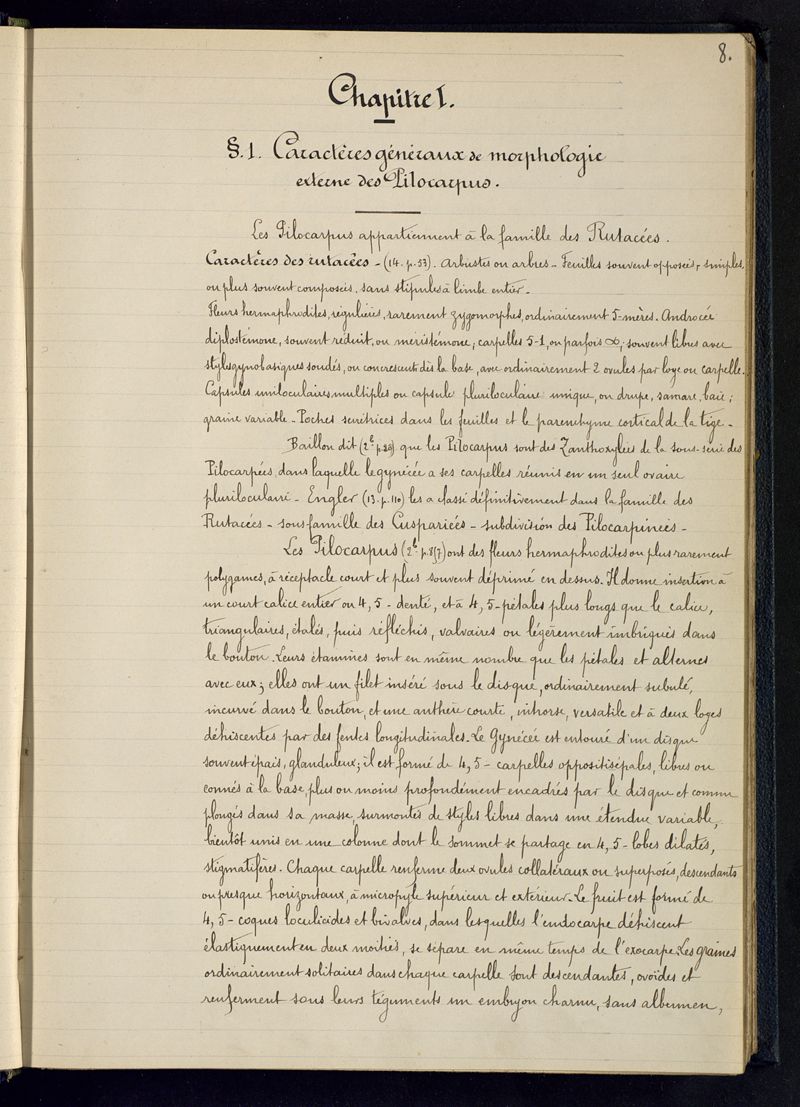 8.
Chapitre I.
§.1. Caractères généraux de morphologie
externe des Pilocarpus.
Les Pilocarpus appartiennent à la famille des Rutacées.
Caractères des rutacées - (14. p. 53). Arbustes ou arbres - Feuilles souvent opposées, simples,
ou plus souvent composées, sans stipules à limbe entier -
Fleurs hermaphrodites, régulières, rarement zygomorphes, ordinairement 5-mères. Androcée
diplostémone, souvent réduit, ou méristémone; carpelles 5-1, ou parfois ∞; souvent libres avec
styles gynobasiques soudés, ou concrescents dès la base, avec ordinairement 2 ovules par loge ou carpelle.
Capsules uniloculaires multiples ou capsule pluriloculaire unique, ou drupe, samare, baie;
graine variable - Poches secrétrices dans les feuilles et le parenchyme cortical de la tige -
Baillon dit (2ᵗ p. 28) que les Pilocarpus sont des Zanthoxylées de la sous-série des
Pilocarpées, dans laquelle le gynécée a ses carpelles réunis en un seul ovaire
pluriloculaire - Engler (13. p. 110) les a classé définitivement dans la famille des
Rutacées - sous famille des Cuspariées - subdivisión des Pilocarpinées -
Les Pilocarpus (2ᵗ p. 857) ont des fleurs hermaphrodites ou plus rarement
polygames, à réceptacle court et plus souvent déprimé en dessus. Il donne insertion à
un court calice entier ou 4, 5 - denté, et à 4, 5 - pétales plus longs que le calice,
triangulaires, étalés, puis réfléchis, valvaires ou légèrement imbriqués dans
le bouton. Leurs étamines sont en même nombre que les pétales et alternes
avec eux; elles ont un filet inséré sous le disque, ordinairement subulé,
incurvé dans le bouton, et une anthère courte, introrse, versatile et à deux loges
déhiscentes par des fentes longitudinales. Le Gynécée est entouré d'un disque
souvent épais, glanduleux; il est formé de 4, 5 - carpelles oppositisépales, libres ou
connés à la base, plus ou moins profondément encadrés par le disque et comme
plongés dans sa masse, surmontés de styles libres dans une étendue variable,
bientôt unis en une colonne dont le sommet se partage en 4, 5 - lobes dilatés,
stigmatifères. Chaque carpelle renferme deux ovules collatéraux ou superposés, descendants
ou presque horizontaux, à micropyle supérieur et extérieur. Le fruit est formé de
4, 5 - coques loculicides et bivalves, dans lesquelles l'endocarpe déhiscent
élastiquement en deux moitiés, se sépare en même temps de l'exocarpe. Les graines
ordinairement solitaires dans chaque carpelle sont descendantes, ovoïdes et
renferment sous leurs téguments un embryon charnu, sans albumen,